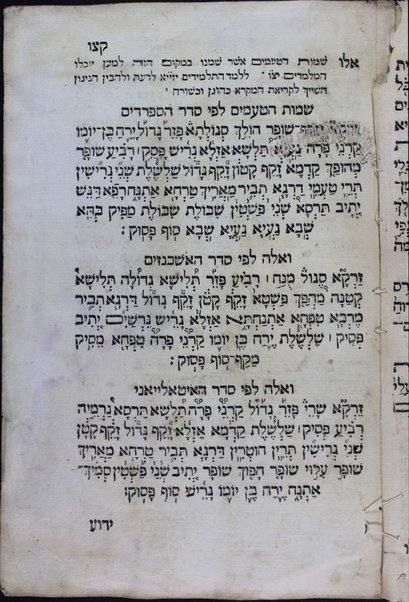 קצו
אלו שמות הטעמים אשר שמנו במקום הזה למען יוכלו
המלמדים יצו״ ללמד התלמידים יזי״א לדעת ולהבין הניגון
השייך לקריאת המקרא כהוגן וכשורה ׃
שמות הטעמים לפי סדר הספרדים
זקף שופר הולך סגולתא פזר גדול ירח בן יומו
קרני פרה געיא תלשא אזלא גריש פסק׀ רביע שופר
מהופך קדמא זקף קטון זקף גדול שלשלת שני גרישין
תרי טעמי דרגא תביר מאריך טרחא אתנח תרסא דגש
יתיב תרסא שני פשטין שבולת שבולת מפיק בה״א
שבא געיא געיא שבא סוף פסוק׃
ואלה לפי סדר האשכנזים
זרקא סגול מנח׀ רביע פזר תלישא גדולה תלישא
קטנה מהפך פשטא זקף קטן זקף גדול דרגא תביר
מרכא טפחא אתנחתא אזלא גריש גרשים יתיב
פסיק׀ שלשלת ירח בן יומו קרני פרה טפחא מסיק
מקף־סוף פסוק׃
ואלה לפי סדר האיטאלייאני
זרקא שרי פזר גדול קרני פרה תלשא תרסא גרמיה
רביע פסיק׀ שלשלת קדמא אזלא זקף גדול זקף קטן
שני גרישין תרין חוטרין דרגא תביר טרחא מאריך
שופר עלוי שופר הפוך שופר יתיב שני פשטין סמיך־
אתנח ירח בן יומו גריש סוף פסוק׃
ידוע